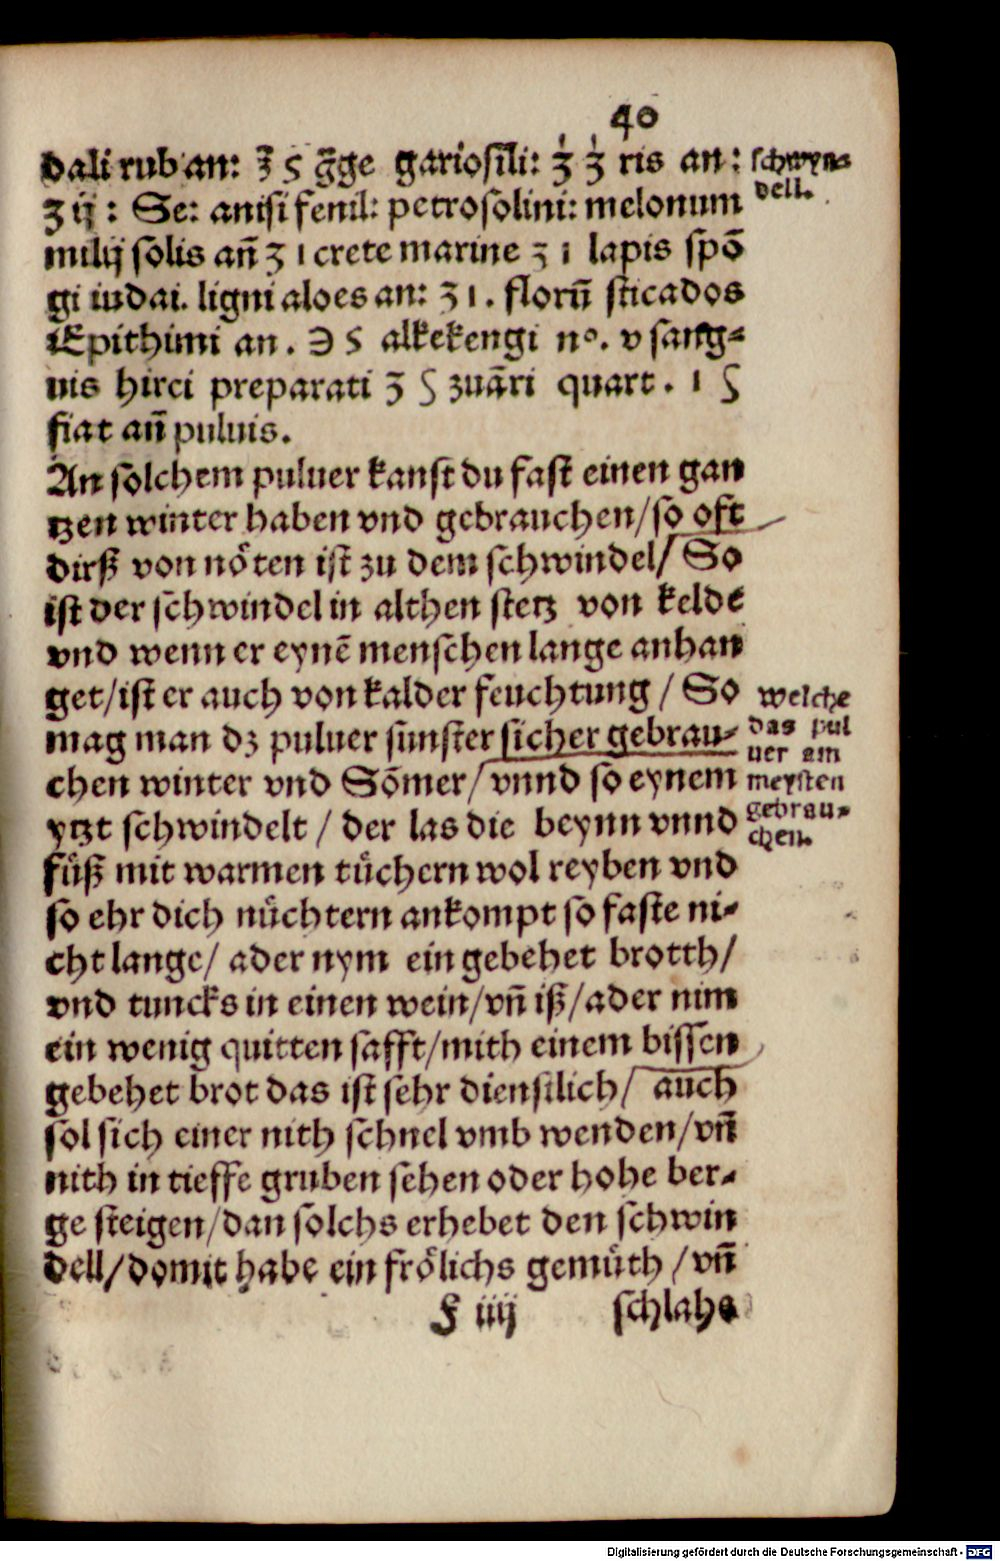 40
dali rub an: ʒ ς g̃ge gariofili: ʒ ʒ ris an:
ʒ ij : Se: anisi fenil: petrosolini: melonum
milij solis an̄ ʒ 1 crete marine ʒ 1 lapis spō
gi iudai. ligni aloes an: ʒ 1. florū sticados
Epithimi an. ℈ ς alkekengi nº. v sang⸗
uis hirci preparati ʒ ς zuāri quart. 1 ς
fiat an̄ puluis.
An solchem puluer kanst du fast einen gan
tzen winter haben vnd gebrauchen/so oft
dirß von nöten ist zu dem schwindel/ So
ist der schwindel in althen stetz von kelde
vnd wenn er eynē menschen lange anhan
get/ist er auch von kalder feuchtung / So
mag man dz puluer sunster sicher gebrau⸗
chen winter vnd Sōmer/vnnd so eynem
ytzt schwindelt / der las die beynn vnnd
füß mit warmen tüchern wol reyben vnd
so ehr dich nüchtern ankompt so faste ni⸗
cht lange/ ader nym ein gebehet brotth/
vnd tuncks in einen wein/vn̄ iß/ader nim
ein wenig quitten safft/mith einem bissen
gebehet brot das ist sehr dienstlich/ auch
sol sich einer nith schnel vmb wenden/vn̄
nith in tieffe gruben sehen oder hohe ber⸗
ge steigen/dan solchs erhebet den schwin
dell/domit habe ein frölichs gemüth /vn̄
F iiij schlahe
schwyn⸗
dell.
welche
das pul
uer am
meysten
gebrau⸗
chen.
Digitalisierung gefördert durch die Deutsche Forschungsgemeinschaft - DFG